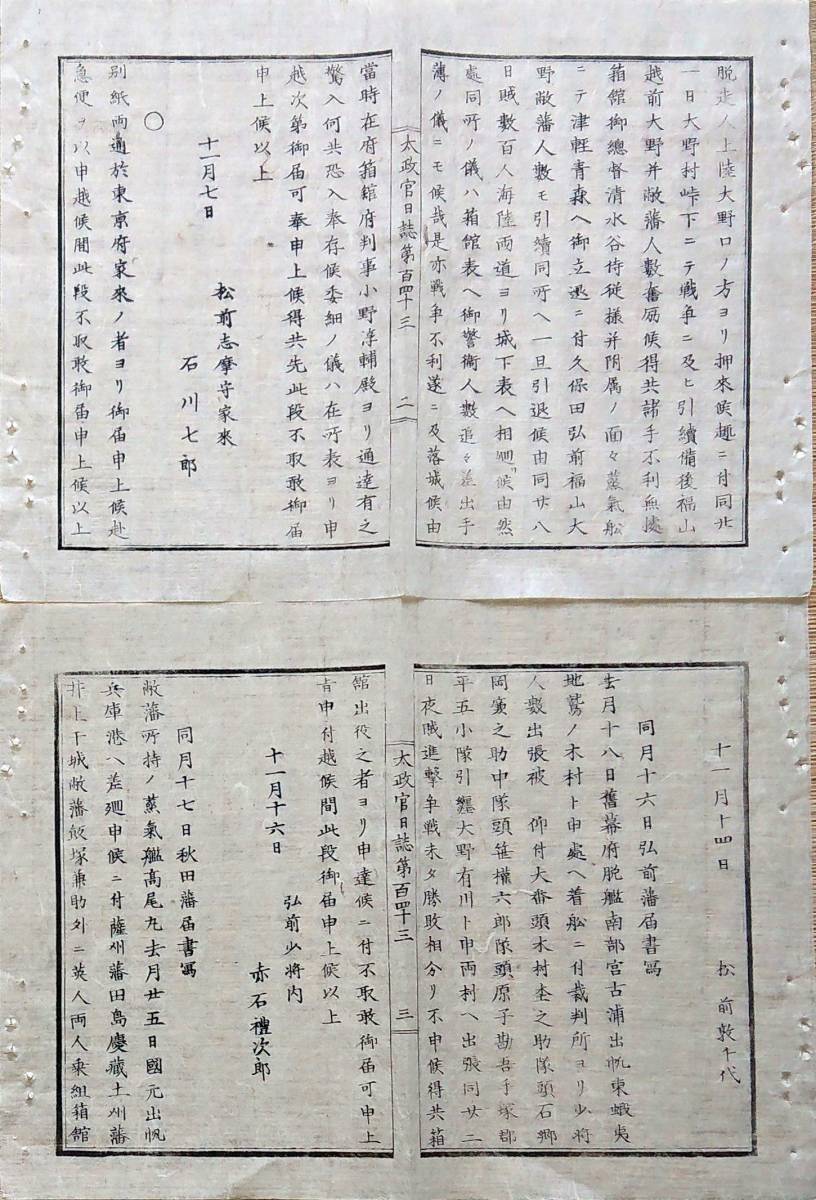 脱走人上陸大野口ノ方ヨリ押來候趣ニ付同廿
一日大野村峠下ニテ戰爭ニ及ヒ引續備後福山
越前大野并敝藩人數奮励候得共諸手不利無據
箱館御總督清水谷侍従様并附属ノ面々蒸氣舩
ニテ津輕青森ヘ御立退ニ付久保田弘前福山大
野敝藩人數モ引續同所ヘ一旦引退候由同廿八
日賊數百人海陸両道ヨリ城下表ヘ相廻候由然
處同所ノ儀ハ箱館表ヘ御警衛人數追々差出手
薄ノ儀ニモ候哉是亦戰爭不利遂ニ及落城候由
太政官日誌第百四十三 二
當時在府箱館府判事小野淳輔殿ヨリ通達有之
驚入何共恐入奉存候委細ノ儀ハ在所表ヨリ申
越次第御届可奉申上候得共先此段不取敢御届
申上候以上
十一月七日
松前志摩守家来
石川七郎
○
別紙両通於東京府家來ノ者ヨリ御届申上候赴
急便ヲ以申越候間此段不取敢御届申上候以上
十一月十四日
松前敦千代
同月十六日弘前藩届書寫
去月十八日舊幕府脱艦南部宮古浦出帆東蝦夷
地鷲ノ木村ト申處ヘ着舩ニ付裁判所ヨリ少將
人數出張被 仰付大番頭木村杢之助隊頭石郷
岡寅之助中隊頭笹權六郎隊頭原子勘吾手塚郡
平五小隊引纏大野有川ト申両村ヘ出張同廿二
日夜賊進撃争戰未タ勝敗相分リ不申候得共箱
太政官日誌第百四十三 三
館出役之者ヨリ申達候ニ付不取敢御届可申上
旨申付越候間此段御届申上候以上
十一月十六日
弘前少將内
赤石禮次郎
同月十七日秋田藩届書寫
敝藩所持ノ蒸氣艦髙尾丸去月廿五日國元出帆
兵庫港ヘ差廻申候ニ付薩州藩田島慶藏土州藩
井上干城敝藩飯塚兼助外ニ英人両人乗組箱館